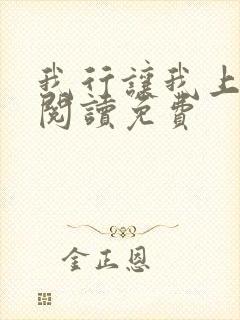 我行讓我上
閱讀免費
金正恩